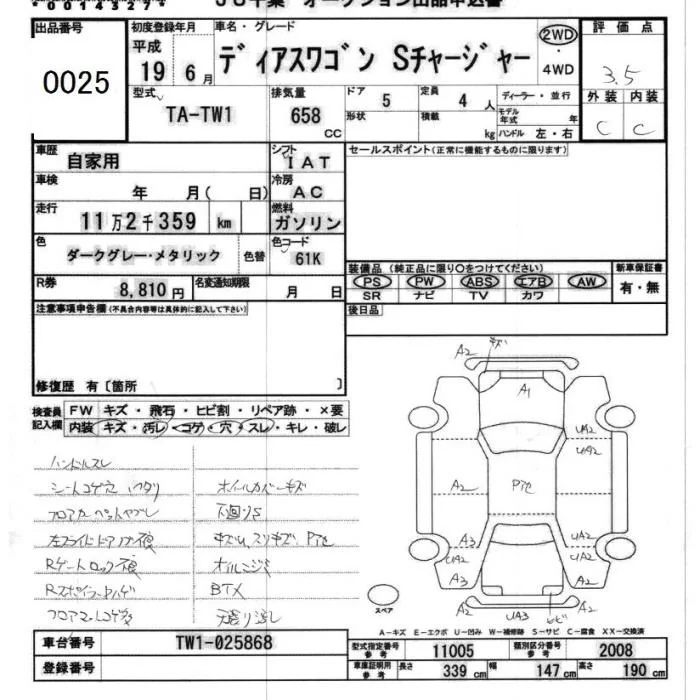 00143274 JU千葉 オークション出品申込書
出品番号 0025
初度登録年月 平成 19 6月
車名・グレード ディアスワゴン Sチャージャー 2WD・4WD
評価点 3.5
外装 内装
C C
型式 TA-TW1
排気量 658 CC
ドア 5
定員 4 人
形状 積載 kg
ディーラー・並行
モデル年式 年
ハンドル 左・右
車歴 自家用
シフト IAT
セールスポイント(正常に機能するものに限ります)
車検 年 月( 日)
冷房 AC
走行 11万2千359 km
燃料 ガソリン
色 ダークグレー・メタリック 色替
色コード 61K
装備品(純正品に限り○をつけてください) 新車保証書
PS PW ABS エアB AW 有・無
SR ナビ TV カワ
R券 8,810円
名変通知期限 月 日
後日品
注意事項申告欄(不具合内容等は具体的に記入して下さい)
修復歴 有〔箇所 〕
検査員記入欄
FW キズ・飛石・ヒビ割・リペア跡・×要
内装 キズ・汚レ・コゲ・穴・スレ・キレ・破レ
ハンドルスレ
シートコゲ穴
オイルカバーキズ
下廻りS
Rゲートロック
オイルニジミ
BTX
A2 キズ
A1
UA2
UA2
A2 Pアセ A2
A3 UA2
UA2 UA2
A3 A2
UA3 ヒビ
A2
スペア
A-キズ E-エクボ U-凹み W-補修跡 S-サビ C-腐食 XX-交換済
車台番号 TW1-025868
型式指定番号 参考 11005
類別区分番号 参考 2008
登録番号
車庫証明用 参考 長さ 339 cm 幅 147 cm 高さ 190 cm